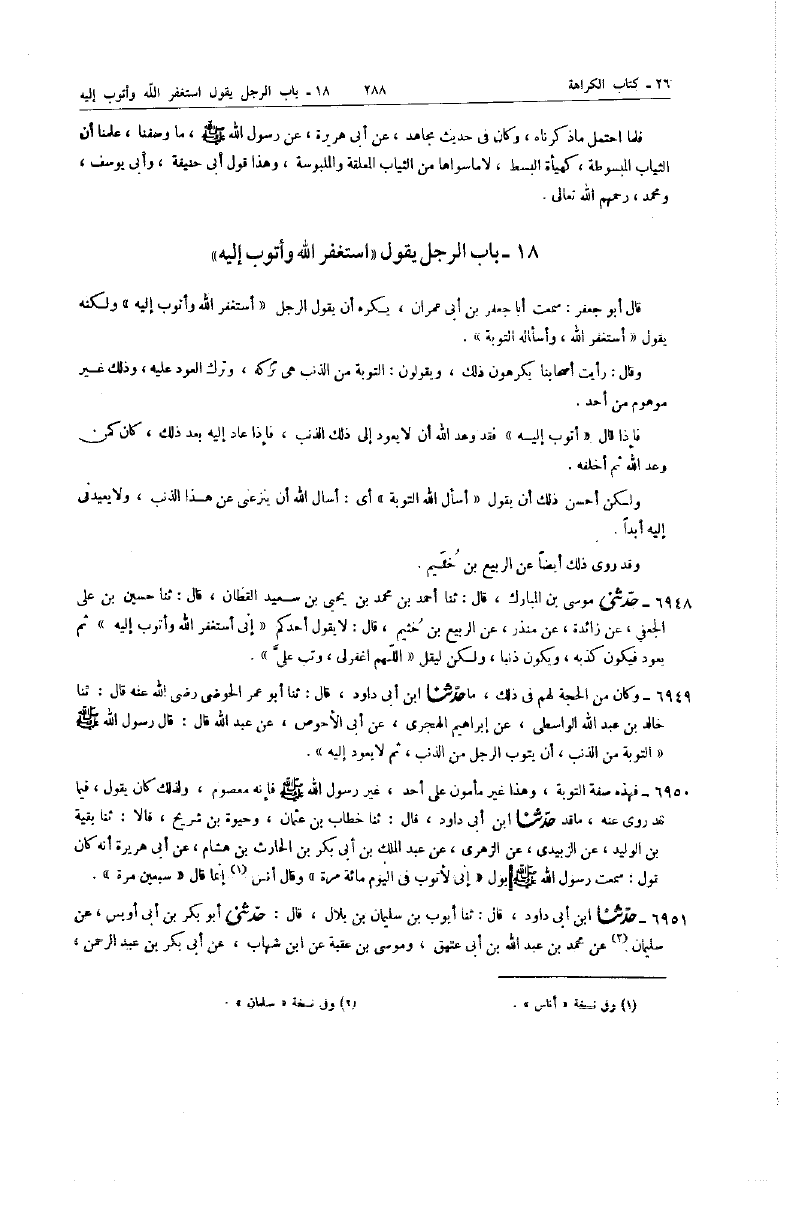 ٢٦ - كتاب الكراهة ٢٨٨ ١٨ - باب الرجل يقول استغفر الله وأتوب إليه
فلما احتمل ماذكرناه ، وكان فى حديث مجاهد ، عن أبى هريرة ، عن رسول الله ﷺ ، ما وصفنا ، علمنا أن
الثياب المبسوطة ، كهيأة البسط ، لاماسواها من الثياب المعلقة والملبوسة ، وهذا قول أبى حنيفة ، وأبى يوسف ،
ومحمد ، رحمهم الله تعالى .
١٨ - باب الرجل يقول «استغفر الله وأتوب إليه»
قال أبو جعفر : سمعت أبا جعفر بن أبى عمران ، يكره أن يقول الرجل « أستغفر الله وأتوب إليه » ولكنه
يقول « أستغفر الله ، وأسأله التوبة » .
وقال : رأيت أصحابنا يكرهون ذلك ، ويقولون : التوبة من الذنب هى تركه ، وترك العود عليه ، وذلك غير
موهوم من أحد .
فإذا قال « أتوب إليه » فقد وعد الله أن لايعود إلى ذلك الذنب ، فإذا عاد إليه بعد ذلك ، كان كمن
وعد الله ثم أخلفه .
ولكن أحسن ذلك أن يقول « أسأل الله التوبة » أى : أسال الله أن ينزعنى عن هذا الذنب ، ولايعيدنى
إليه أبداً .
وقد روى ذلك أيضاً عن الربيع بن خُثَيم .
٦٩٤٨ - حدّثنى موسى بن المبارك ، قال : ثنا أحمد بن محمد بن يحيى بن سعيد القطان ، قال : ثنا حسين بن على
الجعفي ، عن زائدة ، عن منذر ، عن الربيع بن خُثيم ، قال : لايقول أحدكم « إنى أستغفر الله وأتوب إليه » ثم
يعود فيكون كذبه ، ويكون ذنبا ، ولكن ليقل « اللّهم اغفرلى ، وتب علىَّ » .
٦٩٤٩ - وكان من الحجة لهم فى ذلك ، ماحدّثنا ابن أبى داود ، قال : ثنا أبو عمر الحوضى رضى الله عنه قال : ثنا
خالد بن عبد الله الواسطى ، عن إبراهيم الهجرى ، عن أبى الأحوص ، عن عبد الله قال : قال رسول الله ﷺ
« التوبة من الذنب ، أن يتوب الرجل من الذنب ، ثم لايعود إليه » .
٦٩٥٠ - فهذه صفة التوبة ، وهذا غير مأمون على أحد ، غير رسول الله ﷺ فإنه معصوم ، ولذلك كان يقول ، فيما
قد روى عنه ، ماقد حدّثنا ابن أبى داود ، قال : ثنا خطاب بن عثمان ، وحيوة بن شريح ، قالا : ثنا بقية
بن الوليد ، عن الزبيدى ، عن الزهرى ، عن عبد الملك بن أبى بكر بن الحارث بن هشام ، عن أبى هريرة أنه كان
قول : سمعت رسول الله ﷺ يول « إنى لأتوب فى اليوم مائة مرة » وقال أنس (١) إنما قال « سبعين مرة » .
٦٩٥١ - حدّثنا ابن أبى داود ، قال : ثنا أيوب بن سليمان بن بلال ، قال : حدّثنى أبو بكر بن أبى أويس ، عن
سليمان (٢) عن محمد بن عبد الله بن أبى عتيق ، وموسى بن عقبة عن ابن شهاب ، عن أبى بكر بن عبد الرحمن ،
(١) وفى نسخة « أناس » . (٢) وفى نسخة « سلمان » .